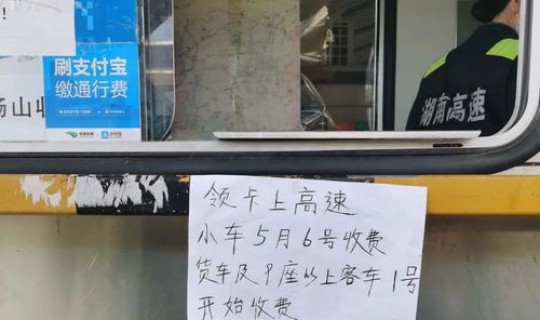 !
刷支付宝
缴通行费
湖南高速
领卡上高速
小车5月6号收费
货车及9座以上客车1号
开始收费